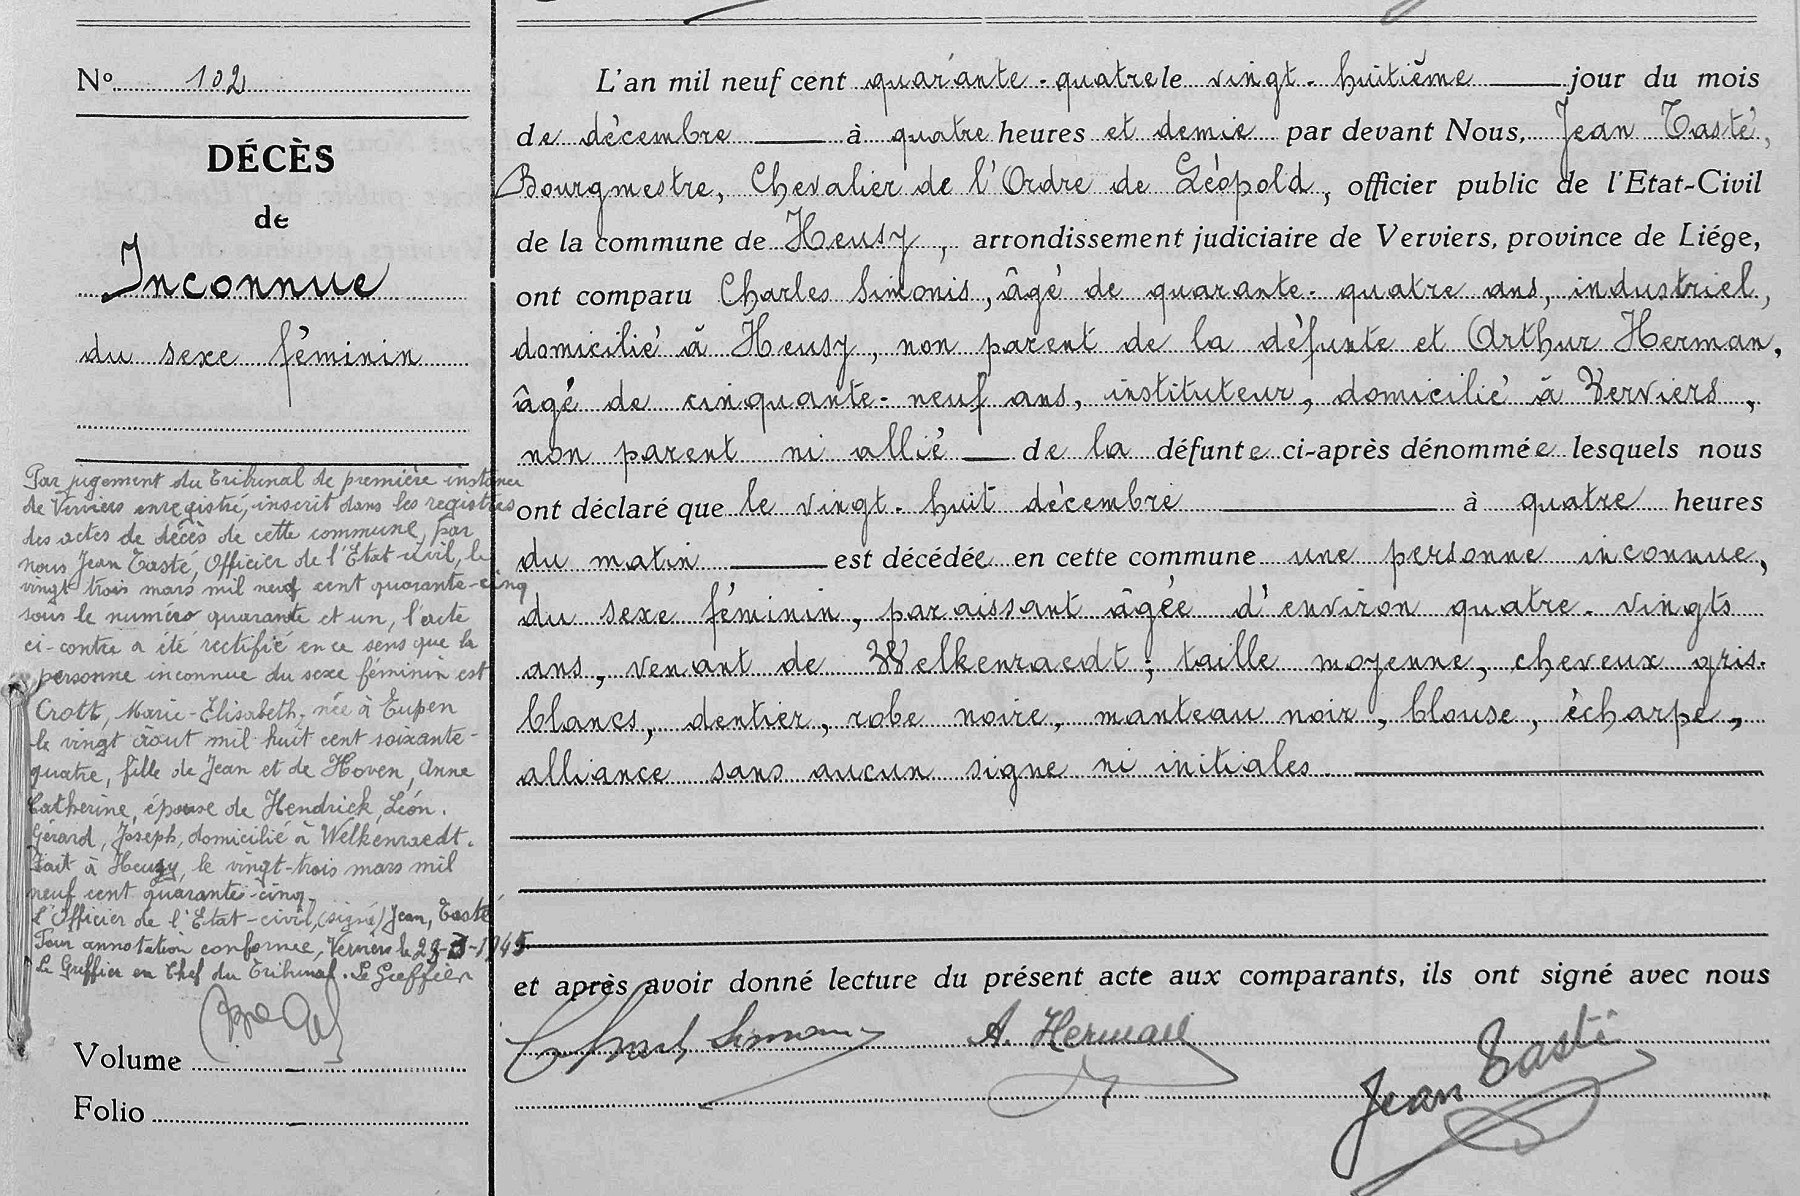 No 102
DÉCÈS
de
Inconnue
du sexe féminin
Par jugement du Tribunal de première instance
de Verviers enregistré, inscrit dans les registres
des actes de décès de cette commune, par
nous Jean Tasté, Officier de l'Etat-civil, le
vingt trois mars mil neuf cent quarante-cinq
sous le numéro quarante et un, l'acte
ci-contre a été rectifié en ce sens que la
personne inconnue du sexe féminin est
Crott, Marie-Elisabeth, née à Eupen
le vingt août mil huit cent soixante-
quatre, fille de Jean et de Hoven, Anne
Catherine, épouse de Hendrick, Léon.
Gérard, Joseph, domicilié à Welkenraedt.
Fait à Heusy, le vingt-trois mars mil
neuf cent quarante-cinq.
L'Officier de l'Etat-civil, (signé) Jean, Tasté
Pour annotation conforme, Verviers le 29-3-1945
Le Greffier en Chef du Tribunal. Le Greffier
Volume
Folio
L'an mil neuf cent quarante-quatre le vingt-huitième jour du mois
de décembre à quatre heures et demie par devant Nous, Jean Tasté,
Bourgmestre, Chevalier de l'Ordre de Léopold, officier public de l'Etat-Civil
de la commune de Heusy, arrondissement judiciaire de Verviers, province de Liége,
ont comparu Charles Simonis, âgé de quarante-quatre ans, industriel,
domicilié à Heusy, non parent de la défunte et Arthur Herman,
âgé de cinquante-neuf ans, instituteur, domicilié à Verviers,
non parent ni allié de la défunte ci-après dénommée lesquels nous
ont déclaré que le vingt-huit décembre à quatre heures
du matin est décédée en cette commune une personne inconnue,
du sexe féminin, paraissant âgée d'environ quatre-vingts
ans, venant de Welkenraedt; taille moyenne, cheveux gris-
blancs, dentier, robe noire, manteau noir, blouse, écharpe,
alliance sans aucun signe ni initiales.
et après avoir donné lecture du présent acte aux comparants, ils ont signé avec nous
A. Herman
Jean Tasté